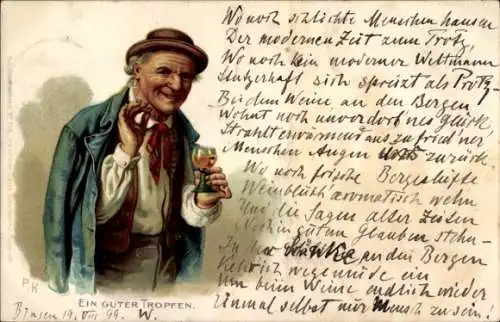 Wo noch schlichte Menschen hausen
Der modernen Zeit zum Trotz,
Wo noch kein moderner Weltmann
Stutzerhaft sich spreizt als Protz
Bei dem Weine, an den Bergen
Wohnt noch unverdorb'nes Glück
Strahlt erwärmend aus zufried'ner
Menschen Augen zurück
Wo noch frische Bergeslüfte
Weinblüth' aromatisch wehn
Und die Sagen alter Zeiten
Noch in guten Glauben stehn
In der an den Bergen
Kehr' ich wegemüde ein
Um beim Weine endlich wieder
Einmal selbst nur Mensch zu sein.
PK
EIN GUTER TROPFEN.
Bingen 19. VIII 99. W.